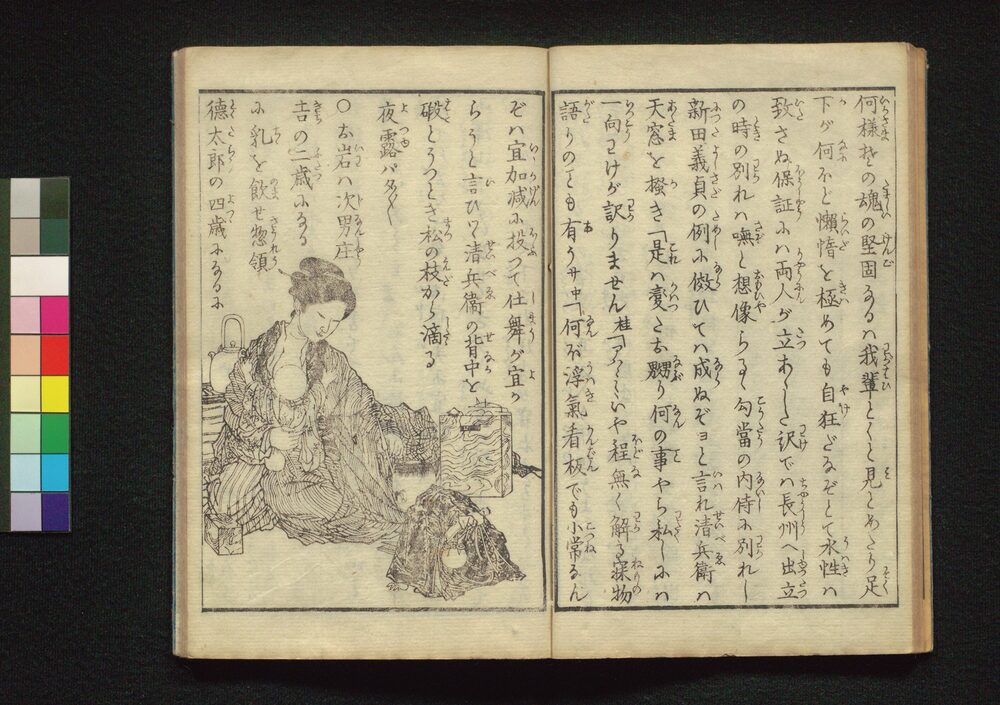 何様其の魂の堅固なるハ我輩とくと見とめたり足
下が何ほど懶惰を極めても自狂だるぞとて水性ハ
致さぬ保証にハ両人が立あふた訳でハ長州へ出立
の時の別れハ嘸と想像らるゝ勾當の内侍に別れし
新田義貞の例に倣ひてハ成ぬぞヨと言れ清兵衛ハ
天窓を掻き「是ハ憂とお嬲り何の事やら私しにハ
一向わけが訳りません桂「アハゝいや程無く解る寐物
語りのことも有うサ中「何ぼ浮氣看板でも小常るん
ぞハ宜加減に投つて仕舞が宜か
らうと言ひつゝ清兵衛の背中を
礑とうつとき松の枝から滴る
夜露パタ〳〵
〇お岩ハ次男庄
吉の二歳になる
に乳を飲せ惣領
徳太郎の四歳になるに